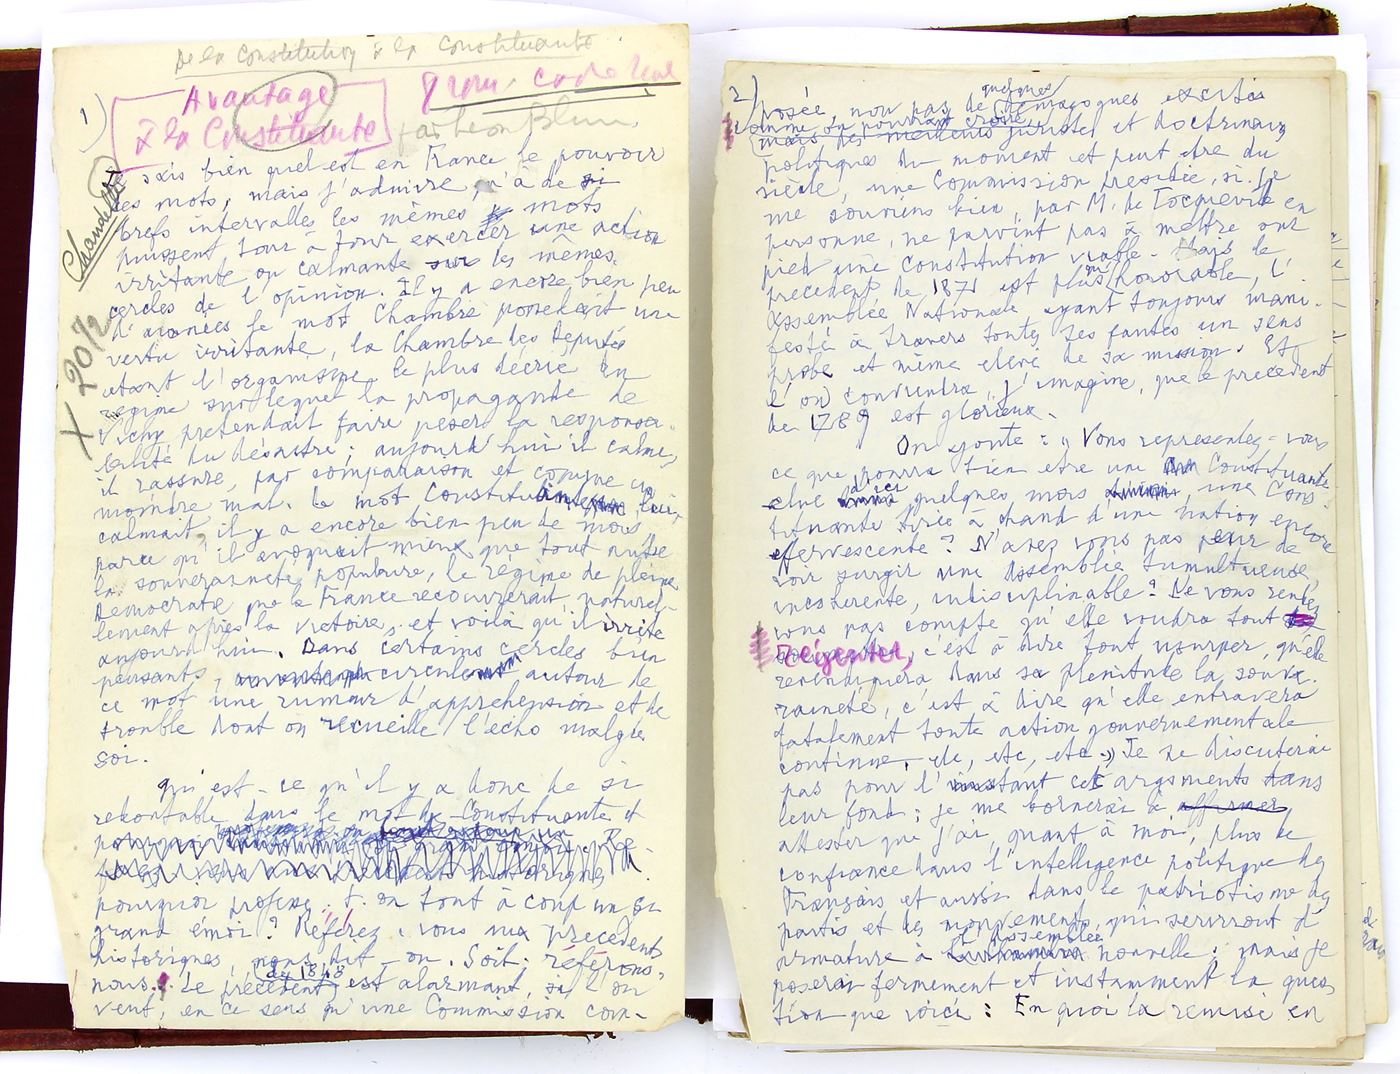 De la Constitution à la Constituante
1)
Avantage
à la Constituante
par Léon Blum
Chandelle
X 20 1/2
sais bien quel est en France le pouvoir
des mots, mais j'admire, qu'à de si
brefs intervalles les mêmes mots
puissent tour à tour exercer une action
irritante ou calmante sur les mêmes
cercles de l'opinion. Il y a encore bien peu
d'années le mot Chambre possédait une
vertu irritante, la Chambre des Députés
étant l'organisme le plus décrié du
régime sur lequel la propagande de
Vichy prétendait faire peser la responsa-
bilité du désastre ; aujourd'hui il calme,
il rassure, par comparaison et comme un
moindre mal. Le mot Constituante lui,
calmait, il y a encore bien peu de mois,
parce qu'il évoquait mieux que tout autre
la souveraineté populaire, le régime de pleine
Démocratie que la France recouvrerait naturel-
lement après la victoire, et voilà qu'il irrite
aujourd'hui. Dans certains cercles bien
pensants, circule autour de
ce mot une rumeur d'appréhension et de
trouble dont on recueille l'écho malgré
soi.
Qu'est-ce qu'il y a donc de si
redoutable dans le mot de Constituante et
pourquoi professe-t-on tout à coup un si
grand émoi ? Référez-vous aux précédents
historiques, nous dit-on. Soit : référons-
nous. Le précédent de 1848 est alarmant, si l'on
veut, en ce sens qu'une Commission com-
2)
posée, non pas de quelques démagogues excités
comme on pourrait croire,
mais des meilleurs juristes et doctrinaires
politiques du moment et peut être du
siècle, une Commission présidée, si je
me souviens bien, par M. de Tocqueville en
personne, ne parvint pas à mettre sur
pied une Constitution viable. Mais le
précédent de 1871 est plus honorable, l'
Assemblée Nationale ayant toujours mani-
festé à travers toutes ses fautes un sens
probe et même élevé de sa mission. Et
l'on conviendra, j'imagine, que le précédent
de 1789 est glorieux.
On ajoute : "Vous représentez-vous
ce que pourra bien être une Constituante
élue d'ici quelques mois, une Cons-
tituante tirée à chaud d'une nation encore
effervescente ? N'avez vous pas peur de
voir surgir une Assemblée tumultueuse,
incohérente, indisciplinable ? Ne vous rendez
vous pas compte qu'elle voudra tout
régenter, c'est à dire tout usurper, qu'elle
revendiquera dans sa plénitude la souve-
raineté, c'est à dire qu'elle entravera
fatalement toute action gouvernementale
continue, etc, etc, etc." Je ne discuterai
pas pour l'instant cet arguments dans
leur fond ; je me bornerai à affirmer
attester que j'ai, quant à moi, plus de
confiance dans l'intelligence politique des
Français et aussi dans le patriotisme des
partis et des mouvements qui serviront d'
armature à l'Assemblée nouvelle ; mais je
poserai fermement et instamment la ques-
tion que voici : En quoi la remise en